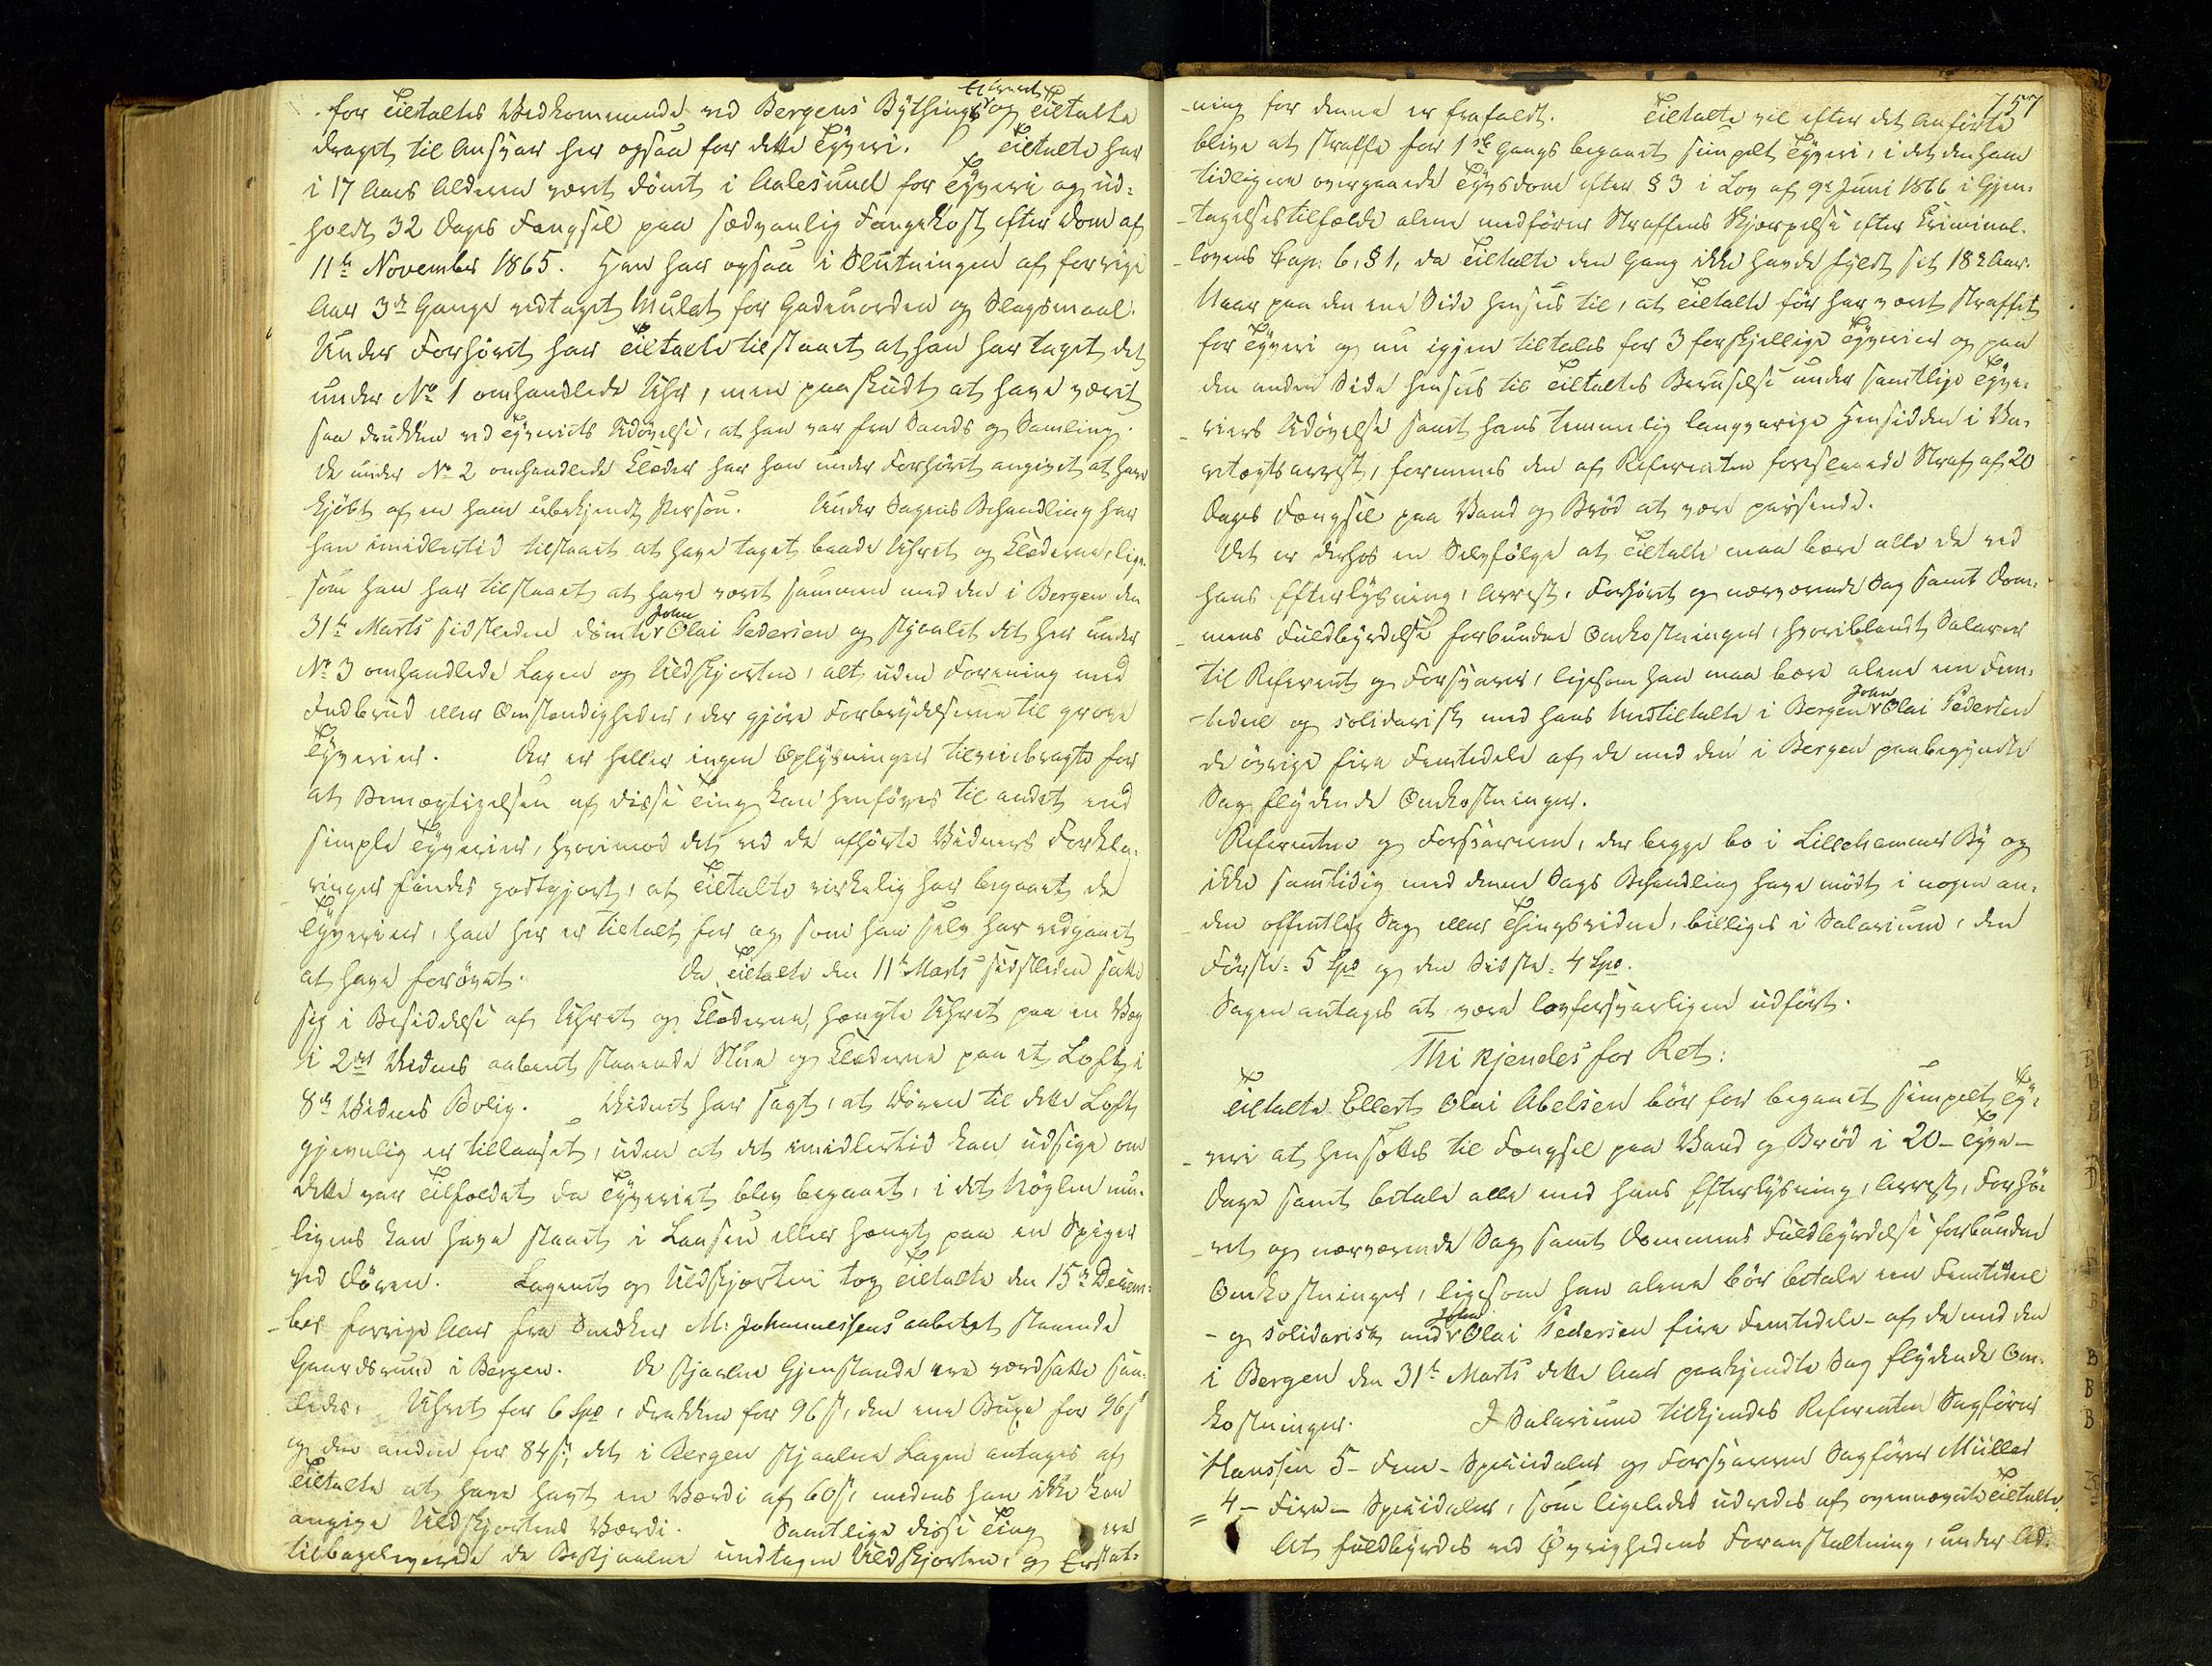 for Tiltaltes Vedkommende ved Bergens Bything, og Tiltalte
draget til Ansvar her ogsaa for dette Tyveri. Tiltalte har
i 17 Aars Alderen været dømt i Aalesund for Tyveri og ud-
holdt 32 Dages Fængsel paa sædvanlig Fangekost efter Dom af
11te November 1865. Han har ogsaa i Slutningen af forrige
Aar 3de Gange vedtaget Mulct for Gadeuorden og Slagsmaal.
Under Forhøret har Tiltalte tilstaaet at han har taget det
under No 1 omhandlede Uhr, men paaskudt at have været
saa drukken ved Tyveriets Udøvelse, at han var fra Sands og Samling.
De under No 2 omhandlede Klæder har han under Forhøret angivet at have
kjøbt af en ham ubekjendt Person. Under Sagens Behandling har
han imidlertid tilstaaet at have taget baade Uhret og Klæderne, lige-
som han har tilstaaet at have været sammen med den i Bergen den
31te Marts sidstleden dømte John Olai Pedersen og stjaalet det her under
No 3 omhandlede Lagen og Uldskjorten, alt uden Forening med
Indbrud eller Omstændigheder, der gjøre Forbrydelserne til grove
Tyverier. Der er heller ingen Oplysninger tilveiebragte for
at Bemægtigelsen af disse Ting kan henføres til andet end
simple Tyverier, hvorimod det ved de afhørte Vidners Forkla-
ringer findes godtgjort, at Tiltalte virkelig har begaaet de
Tyverier, han her er tiltalt for og som han selv har vedgaaet
at have forøvet. Da Tiltalte den 11te Marts sidstleden satte
sig i Besiddelse af Uhret og Klæderne, hængte Uhret paa en Væg
i 2det Vidnes aabent staaende Stue og Klæderne paa et Loft i
8de Vidnes Bolig. Vidnet har sagt, at Døren til dette Loft
gjevnlig er tillaaset, uden at det imidlertid kan udsige om
dette var Tilfældet da Tyveriet blev begaaet, idet Nøglen mu-
ligens kan have staaet i Laasen eller hængt paa en Spiger
ved Døren. Lagenet og Uldskjorten tog Tiltalte den 15de Decem-
ber forrige Aar fra Snedker M. Johannessens aabent staaende
Gaardsrum i Bergen. De stjaalne Gjenstande ere værdsatte saa-
ledes: Uhret for 6 Spd, Frakken for 96 s, den ene Buxe for 96 s
og den anden for 84 s; det i Bergen stjaalne Lagen antages af
Tiltalte at have havt en Værdi af 60 s, medens han ikke kan
angive Uldskjortens Værdi. Samtlige disse Ting ere
tilbageleverede de Bestjaalne undtagen Uldskjorten, og Erstat-
757
ning for denne er frafaldt. Tiltalte vil efter det Anførte
blive at straffe for 1ste Gangs begaaet simpelt Tyveri, idet den ham
tidligere overgaaede Tyvsdom efter § 3 i Lov af 9de Juni 1866 i Gjen-
tagelsestilfælde alene medfører Straffens Skjærpelse efter Kriminal-
lovens Cap. 6, § 1, da Tiltalte den Gang ikke havde fyldt sit 18de Aar.
Naar paa den ene Side henses til, at Tiltalte før har været straffet
for Tyveri og nu igjen tiltales for 3 forskjellige Tyverier og paa
den anden Side henses til Tiltaltes Beruselse under samtlige Tyve-
riers Udøvelse samt hans temmelig langvarige Hensidden i Va-
retægtsarrest, formenes den af Referenten foreslaaede Straf af 20
Dages Fængsel paa Vand og Brød at være passende.
Det er derhos en Selvfølge at Tiltalte maa bære alle de ved
hans Efterlysning, Arrest, Forhøret og nærværende Sag samt Dom-
mens Fuldbyrdelse forbundne Omkostninger, hvoriblandt Salarer
til Referent og Forsvarer, ligesom han maa bære alene een Fem-
tedeel og solidarisk med hans Medtiltalte i Bergen John Olai Pedersen
de øvrige fire Femtedele af de med den i Bergen paabegyndte
Sag flydende Omkostninger.
Referenten og Forsvareren, der begge bo i Lillehammer By og
ikke samtidig med denne Sags Behandling have mødt i nogen an-
den offentlig Sag eller Thingsvidne, billiges i Salarium, den
Første: 5 Spd og den Sidste: 4 Spd.
Sagen antages at være lovforsvarligen udført.
Thi kjendes for Ret:
Tiltalte Ellert Olai Abelsen bør for begaaet simpelt Ty-
veri at hensættes til Fængsel paa Vand og Brød i 20 - tyve -
Dage samt betale alle med hans Efterlysning, Arrest, Forhø-
ret og nærværende Sag samt Dommens Fuldbyrdelse forbundne
Omkostninger, ligesom han alene bør betale een Femtedeel
- og solidarisk med John Olai Pedersen fire Femtedele - af de med den
i Bergen den 31te Marts dette Aar paakjendte Sag flydende Om-
kostninger. I Salarium tilkjendes Referenten Sagfører
Hanssen 5 - fem - Speciedaler og Forsvareren Sagfører Müller
4 - fire - Speciedaler, som ligeledes udredes af ovennævnte Tiltalte.
At fuldbyrdes ved Øvrighedens Foranstaltning, under Ad-